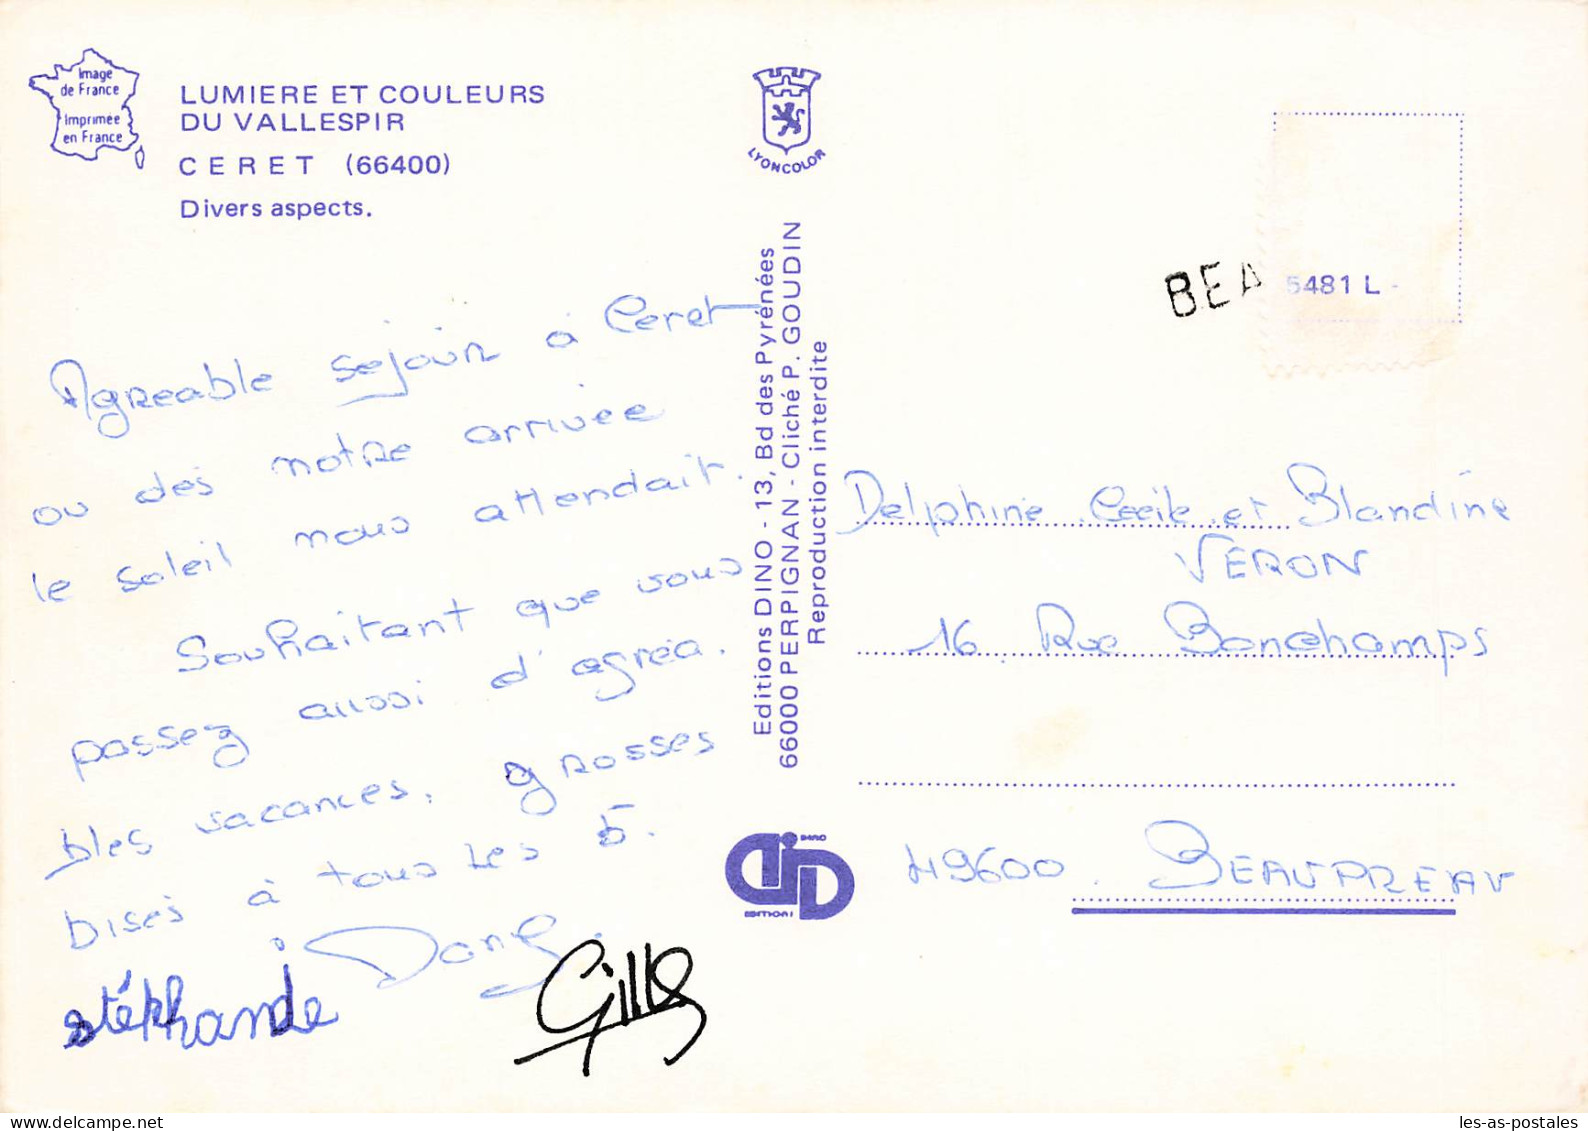 Image
de France
Imprimée
en France
LUMIERE ET COULEURS
DU VALLESPIR
CERET (66400)
Divers aspects.
LYONCOLOR
Agreable sejour à Ceret
ou dès notre arrivée
le soleil nous attendait.
Souhaitant que vous
passez aussi d'agréa.
bles vacances, grosses
bises à tous les 5.
stéphanie
Gilles
Editions DINO - 13, Bd des Pyrénées
66000 PERPIGNAN - Cliché P. GOUDIN
Reproduction interdite
BEA
5481 L -
Delphine, Cecile et Blandine
VERON
16 Rue Bonchamps
49600 BEAUPREAU
les-as-postales